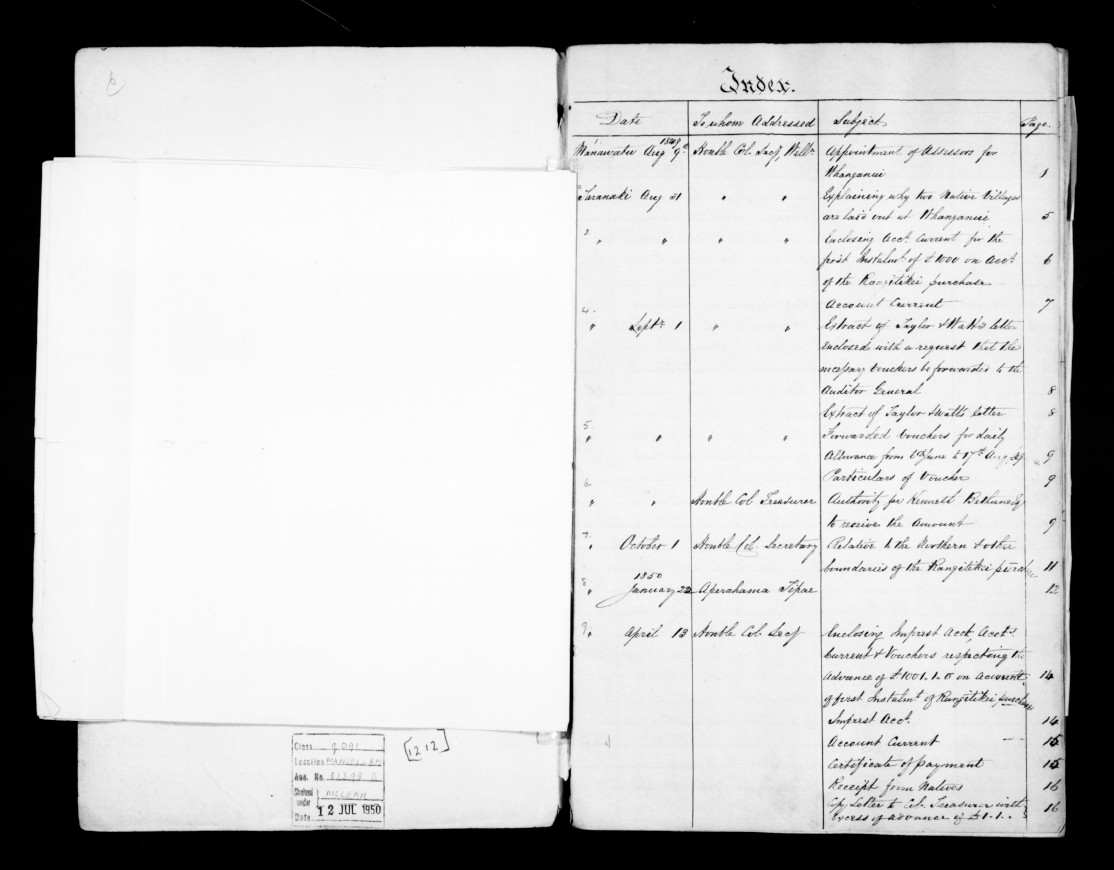 Class q 091
Location
Acc. No.
Shelved under MCLEAN
Date 12 JUL 1950
[1212]
Index.
Date To whom Addressed Subject Page.
1849
Manawatu Aug 9th Honble Col. Secy, Welln Appointment of Assessors for
Whanganui 1
2 Taranaki Aug 31 " " Explaining why two Native Villages
are laid out at Whanganui 5
3 " " " " Enclosing Acct. Current for the
first Instalmt of £1000 on Acct 6
of the Rangitikei purchase
Account Current 7
4 " Septr 1 " " Extract of Taylor & Watt's letter
enclosed with a request that the
necessary Vouchers be forwarded to the
Auditor General 8
Extract of Taylor & Watt's letter 8
5 " " " " Forwarded Vouchers for daily
Allowance from 6 June to 17th Aug. 9
Particulars of Voucher 9
6 " " Honble Col Treasurer Authority for Kenneth Bethune Esq
to receive the Amount 9
7 " October 1 Honble Col. Secretary Relative to the Northern & other
boundaries of the Rangitikei purchase 11
1850
8 " January 22 Aperahama Tipae 12
9 " April 13 Honble Col Secy Enclosing Imprest Acct, Accts
Current & Vouchers respecting the
Advance of £1001.1.0 on account 14
of first Instalmt of Rangitikei purchase
Imprest Acct. 14
Account Current 15
Certificate of payment 15
Receipt from Natives 16
Copy Letter to Col. Treasurer with 16
Excess of advance of £1.1..